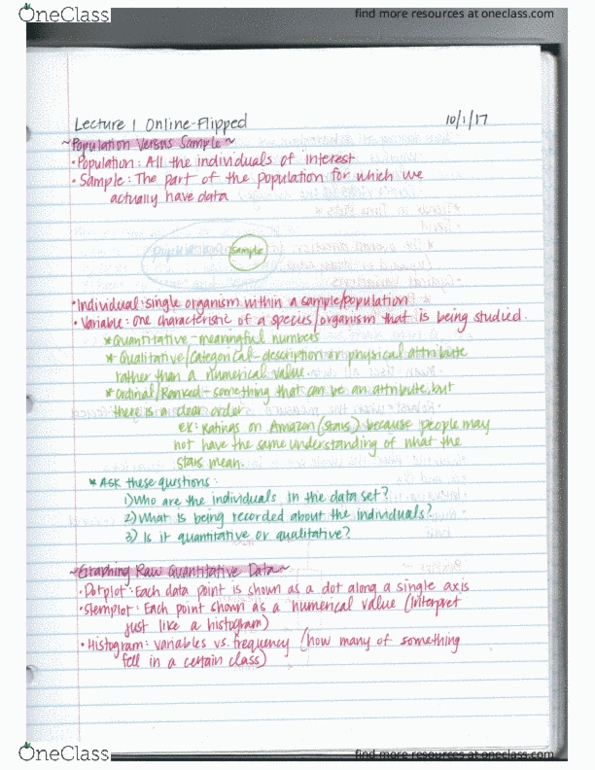 OneClass
find more resources at oneclass.com
Lecture 1 Online-Flipped
10/1/17
~Population Versus Sample~
• Population: All the individuals of interest
• Sample: The part of the population for which we
actually have data
Population
Sample
• Individual: single organism within a sample/population
• Variable: one characteristic of a species/organism that is being studied.
* Quantitative - meaningful numbers
* Qualitative/Categorical - description or physical attribute
rather than a numerical value.
* Ordinal/Ranked - something that can be an attribute, but
there is a clear order
ex: Ratings on Amazon (stars) because people may
not have the same understanding of what the
stars mean.
* Ask these questions:
1) Who are the individuals in the data set?
2) What is being recorded about the individuals?
3) Is it quantitative or qualitative?
~Graphing Raw Quantitative Data~
• Dotplot: Each data point is shown as a dot along a single axis
• Stemplot: Each point shown as a numerical value (interpret
just like a histogram)
• Histogram: variables vs. frequency (how many of something
fell in a certain class)
OneClass
find more resources at oneclass.com